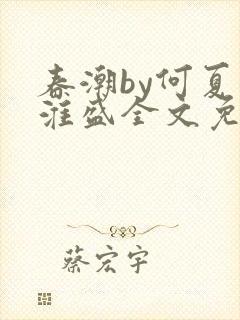 春潮by何夏
淮盛全文免
蔡宏宇